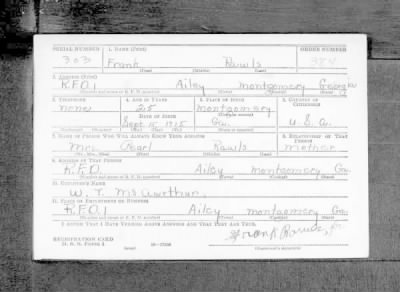 SERIAL NUMBER 1. NAME (Print) ORDER NUMBER
303 Frank Rawls 384
(First) (Middle) (Last)
2. ADDRESS (Print)
R.F.D.1 Ailey Montgomery Georgia
(Number and street or R. F. D. number) (Town) (County) (State)
3. TELEPHONE 4. AGE IN YEARS 5. PLACE OF BIRTH 6. COUNTRY OF CITIZENSHIP
none 25 Montgomery
DATE OF BIRTH (Town or county)
Sept 15 1915 Ga. U.S.a.
(Exchange) (Number) (Mo.) (Day) (Yr.) (State or country)
7. NAME OF PERSON WHO WILL ALWAYS KNOW YOUR ADDRESS 8. RELATIONSHIP OF THAT PERSON
Mrs. Pearl Rawls mother
(Mr., Mrs., Miss) (First) (Middle) (Last)
9. ADDRESS OF THAT PERSON
R.F.D. Ailey Montgomery Ga.
(Number and street or R. F. D. number) (Town) (County) (State)
10. EMPLOYER'S NAME
W. T. McArthur,
11. PLACE OF EMPLOYMENT OR BUSINESS
R.F.D.1 Ailey Montgomery Ga.
(Number and street or R. F. D. number) (Town) (County) (State)
I AFFIRM THAT I HAVE VERIFIED ABOVE ANSWERS AND THAT THEY ARE TRUE.
REGISTRATION CARD Frank Rawls
D. S. S. Form 1 16—17105 (Registrant's signature)